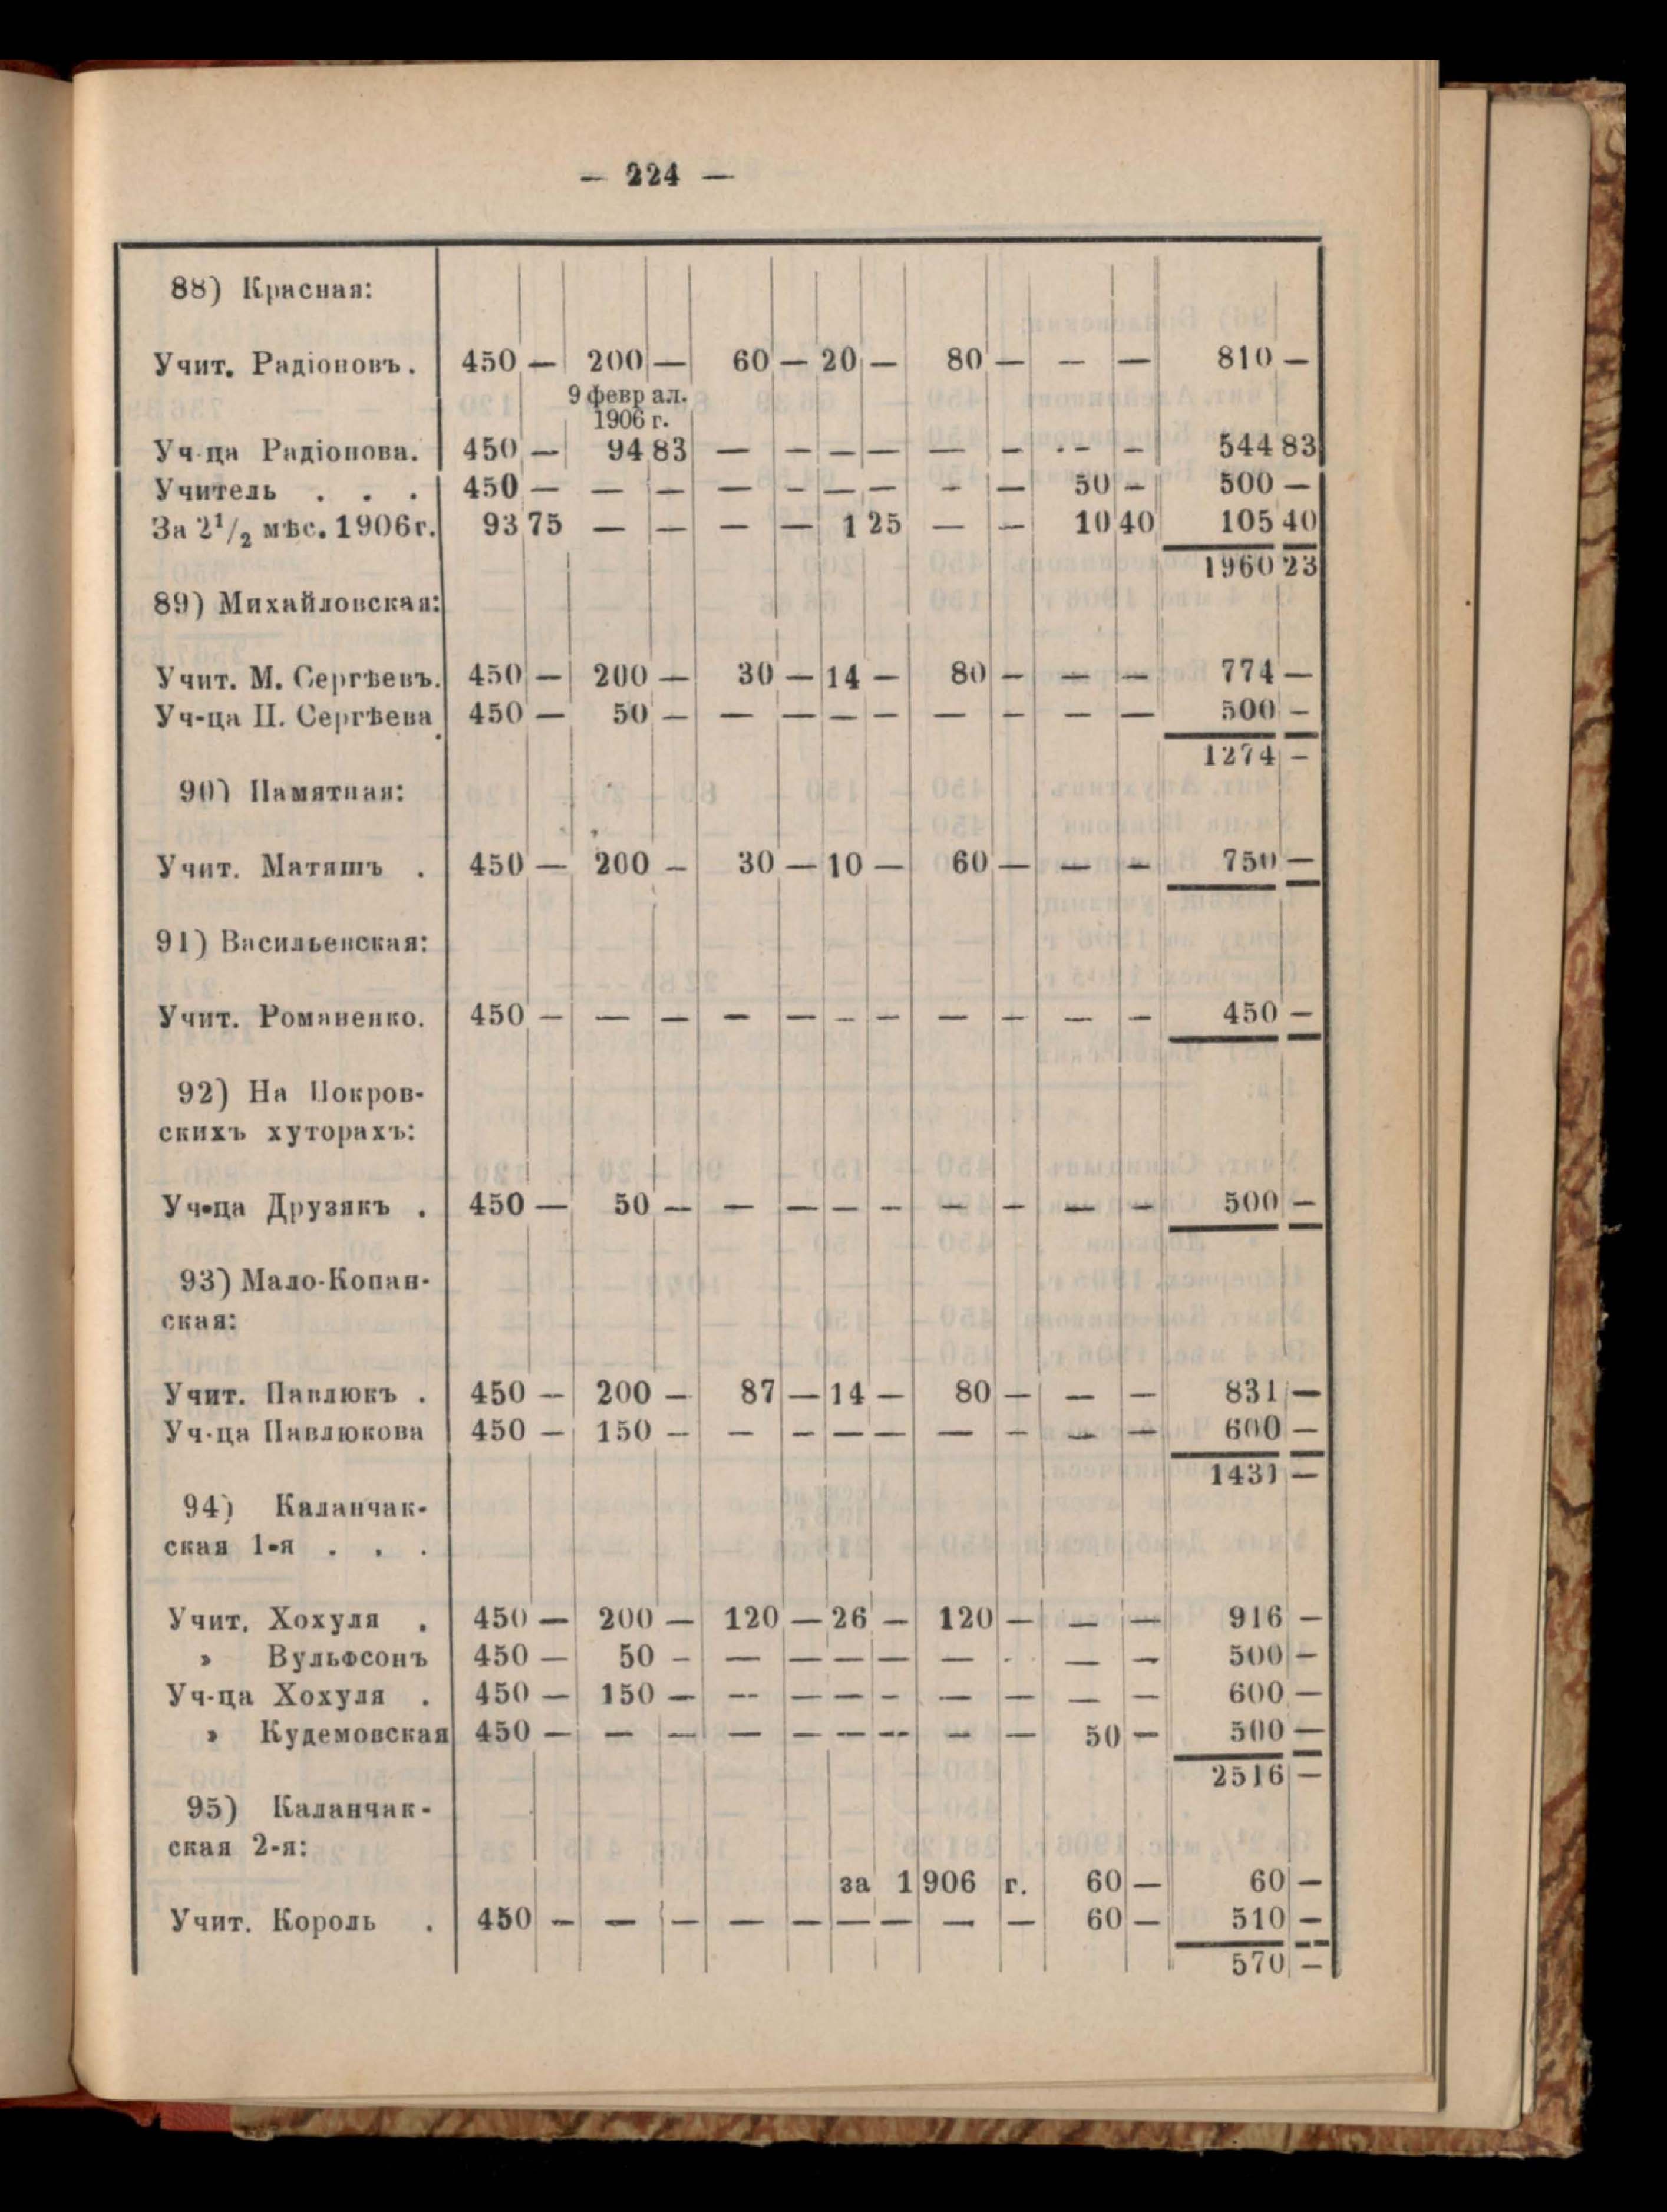 — 224 —
88) Красная:
Учит. Радіоновъ. 450 — 200 — 60 — 20 — 80 — — — 810 —
9 феврал.
1906 г.
Уч-ца Радіонова. 450 — 94 83 — — — — — — - - — 544 83
Учитель . . . 450 — — — — — — — — — 50 — 500 —
За 2¹/₂ мѣс. 1906г. 93 75 — — — — 1 25 — — 10 40 105 40
1960 23
89) Михайловская:
Учит. М. Сергѣевъ. 450 — 200 — 30 — 14 — 80 — — — 774 —
Уч-ца П. Сергѣева 450 — 50 — — — — — — — — — 500 —
1274 —
90) Памятная:
Учит. Матяшъ . 450 — 200 — 30 — 10 — 60 — — — 750 —
91) Васильевская:
Учит. Романенко. 450 — — — — — — — — — — — 450 —
92) На Покров-
скихъ хуторахъ:
Уч-ца Друзякъ . 450 — 50 — — — — — — — — — 500 —
93) Мало-Копан-
ская:
Учит. Павлюкъ . 450 — 200 — 87 — 14 — 80 — — — 831 —
Уч-ца Павлюкова 450 — 150 — — — — — — — — — 600 —
1431 —
94) Каланчак-
ская 1-я . . .
Учит. Хохуля . 450 — 200 — 120 — 26 — 120 — — — 916 —
» Вульфсонъ 450 — 50 — — — — — — - — — 500 —
Уч-ца Хохуля . 450 — 150 — — — — — — — — — 600 —
» Кудемовская 450 — — — — — — — — — 50 — 500 —
2516 —
95) Каланчак-
ская 2-я:
за 1906 г. 60 — 60 —
Учит. Король . 450 — — — — — — — — — 60 — 510 —
570 —